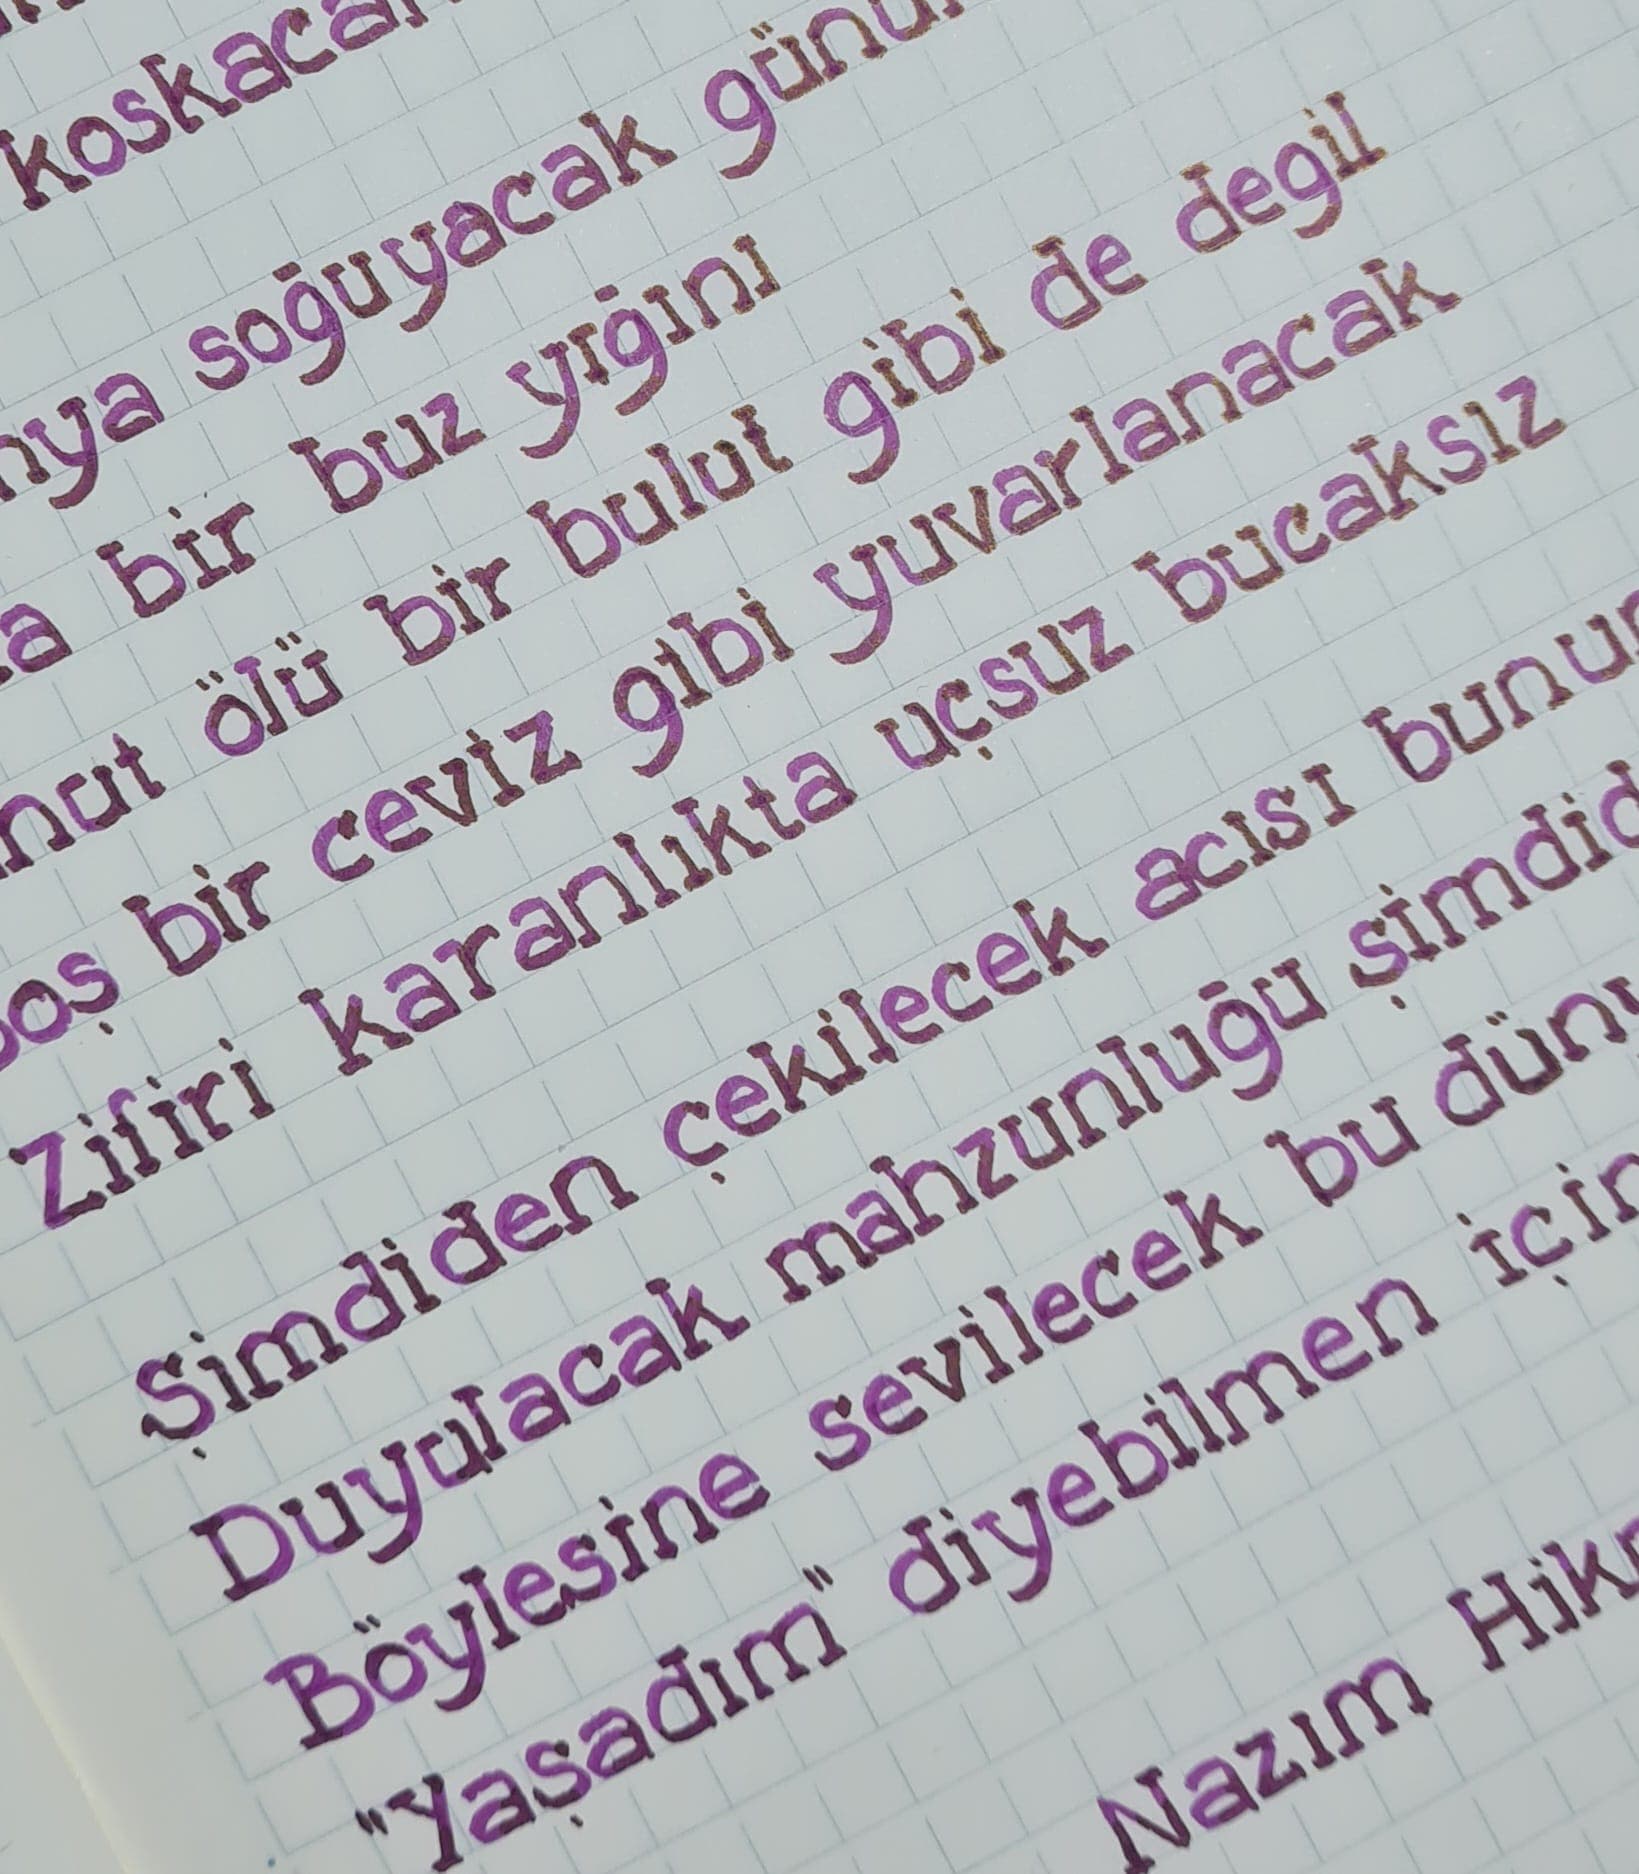 koskaca
soğuyacak
bir buz yığını
ölü bir bulut gibi de degil
bir ceviz gibi yuvarlanacak
Zifiri karanlıkta uçsuz bucaksız
Şimdiden çekilecek acısı bunun
Duyulacak mahzunluğu şimdid
Böylesine sevilecek bu dün
"Yaşadım" diyebilmen için
Nazım Hik